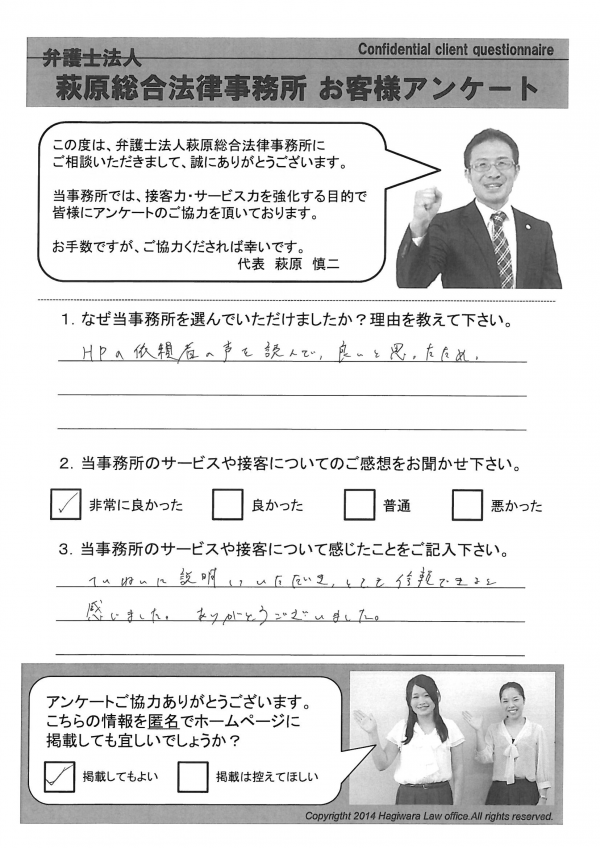 Confidential client questionnaire
弁護士法人
萩原総合法律事務所 お客様アンケート
この度は、弁護士法人萩原総合法律事務所に
ご相談いただきまして、誠にありがとうございます。
当事務所では、接客力・サービス力を強化する目的で
皆様にアンケートのご協力を頂いております。
お手数ですが、ご協力くだされば幸いです。
代表 萩原 慎二
1. なぜ当事務所を選んでいただけましたか？理由を教えて下さい。
HPの依頼者の声を読んで、良いと思ったため。
2. 当事務所のサービスや接客についてのご感想をお聞かせ下さい。
非常に良かった 良かった 普通 悪かった
3. 当事務所のサービスや接客について感じたことをご記入下さい。
ていねいに説明していただき、とても信頼できると
感じました。ありがとうございました。
アンケートご協力ありがとうございます。
こちらの情報を匿名でホームページに
掲載しても宜しいでしょうか？
掲載してもよい 掲載は控えてほしい
Copyright 2014 Hagiwara Law office.All rights reserved.